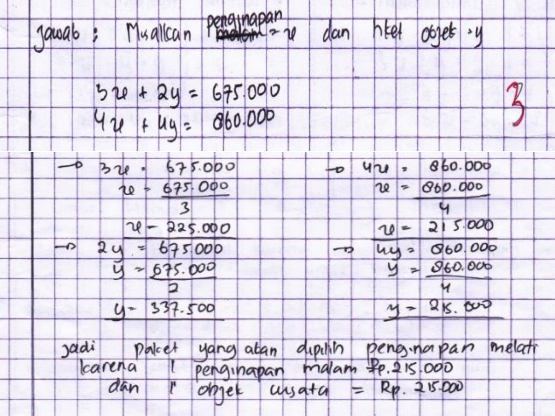 Jawab : Misalkan penginapan = x dan tiket objek = y
3x + 2y = 675.000
4x + 4y = 860.000
3
→ 3x = 675.000
x = 675.000
3
x = 225.000
→ 2y = 675.000
y = 675.000
2
y = 337.500
→ 4x = 860.000
x = 860.000
4
x = 215.000
→ 4y = 860.000
y = 860.000
4
y = 215.000
Jadi paket yang akan dipilih penginapan melati
karena 1 penginapan malam Rp.215.000
dan 1 objek wisata = Rp. 215.000